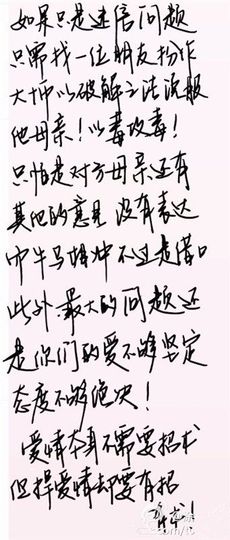 如果只是迷信问题
只需找一位朋友扮作
大师以破解之法说服
他母亲！以毒攻毒！
只怕是对方母亲还有
其他的意见 没有表达
中牛马相冲不过是借口
此外,最大的问题还
是你们的爱不够坚定
态度不够绝决！
爱情本身不需要招术
但捍爱情却要有招
术！